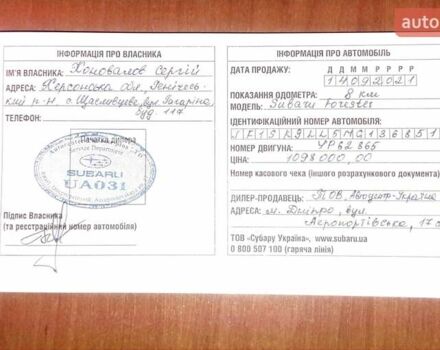 auto
ІНФОРМАЦІЯ ПРО ВЛАСНИКА
ІМ'Я ВЛАСНИКА: Коновалов Сергій
АДРЕСА: Херсонська обл., Генічесь-
кий р-н, с. Щасливцеве, вул. Гагаріна,
буд 117
ТЕЛЕФОН:
Печатка дилера
Service Department
SUBARU
UA031
Підпис Власника
(та реєстраційний номер автомобіля)
ІНФОРМАЦІЯ ПРО АВТОМОБІЛЬ
Д Д М М Р Р Р Р
ДАТА ПРОДАЖУ: 14092021
ПОКАЗАННЯ ОДОМЕТРА: 8 км
МОДЕЛЬ: Subaru Forester
ІДЕНТИФІКАЦІЙНИЙ НОМЕР АВТОМОБІЛЯ:
НОМЕР ДВИГУНА: YP62865
ЦІНА: 1098000,00
Номер касового чека (іншого розрахункового документа):
ДИЛЕР-ПРОДАВЕЦЬ: ТОВ „Автоцентр-Україна
АДРЕСА: м. Дніпро, вул.
Аеропортівська, 17
ТОВ «Субару Україна», www.subaru.ua
0 800 507 100 (гаряча лінія)